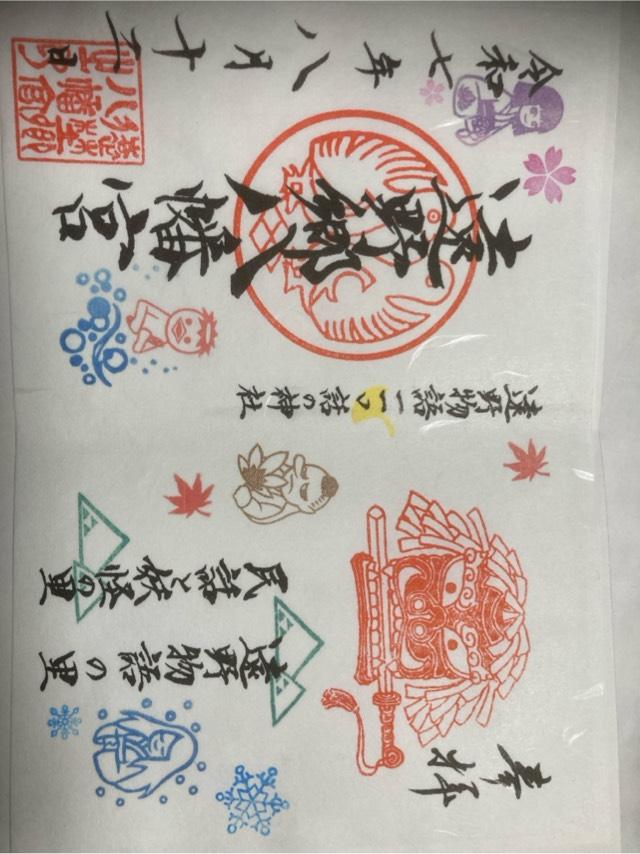 奉拝
遠野物語の里
民話と妖怪の里
遠野物語一つ話の神社
遠野郷八幡宮
令和七年八月十日